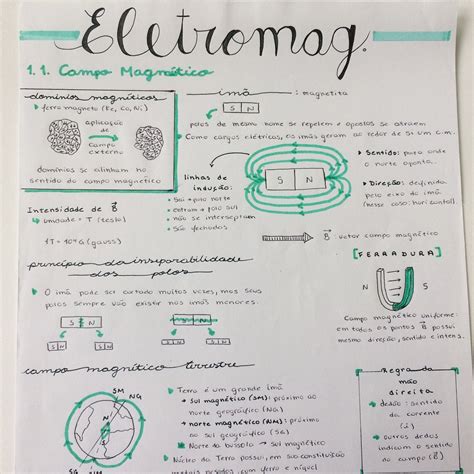 Eletromag.
1.1. Campo Magnético
domínios magnéticos
ferro magneto (Fe, Co, Ni)
aplicação
de
campo
externo
domínios se alinham no
sentido do campo magnético
ímã : magnetita
S N
polos de mesmo nome se repelem e opostos se atraem
Como cargas elétricas, os ímãs geram ao redor de si um C.M.
linhas de
indução:
• Sai polo norte
• entram polo sul
• não se interceptam
• São fechadas
S N
Sentido: para onde
o norte aponta.
Direção: definida
pelo eixo do ímã
(nesse caso: horizontal)
Intensidade de B
unidade = T (tesla)
1T = 10⁴G (gauss)
B: vetor campo magnético
princípio da inseparabilidade
dos polos
O ímã pode ser cortado muitas vezes, mas seus
polos sempre vão existir nos ímãs menores.
S N
S N
S N
S N
[FERRADURA]
N S
Campo magnético uniforme:
em todos os pontos B possui
mesmo direção, sentido e intens.
campo magnético terrestre
SM
NG
NM
SG
Terra é um grande ímã
→ Sul magnético (SM): próximo ao
norte geográfico (NG)
→ norte magnético (NM): próximo
ao sul geográfico (SG)
norte da bússola → sul magnético
Núcleo da Terra possui, em sua constituição
metais pesados com ferro e níquel
Regra da
mão
direita
dedão: sentido
da corrente
(i)
outros dedos
indicam o sentido
do campo (B)